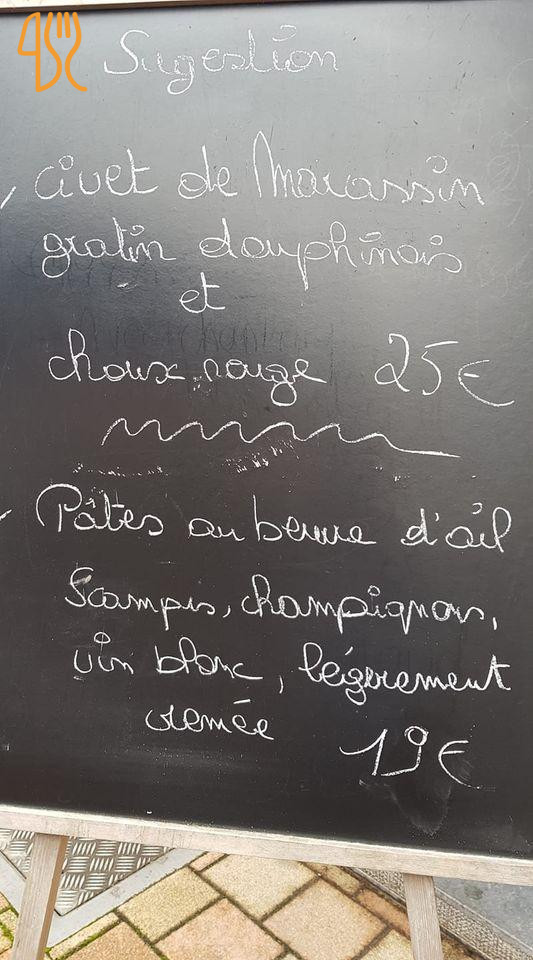 Sugestion
civet de Marassin
gratin dauphinois
et
choux rouge 25€
Pâtes au beurre d'ail
Scampis, champignons,
vin blanc, légèrement
cremée 19€